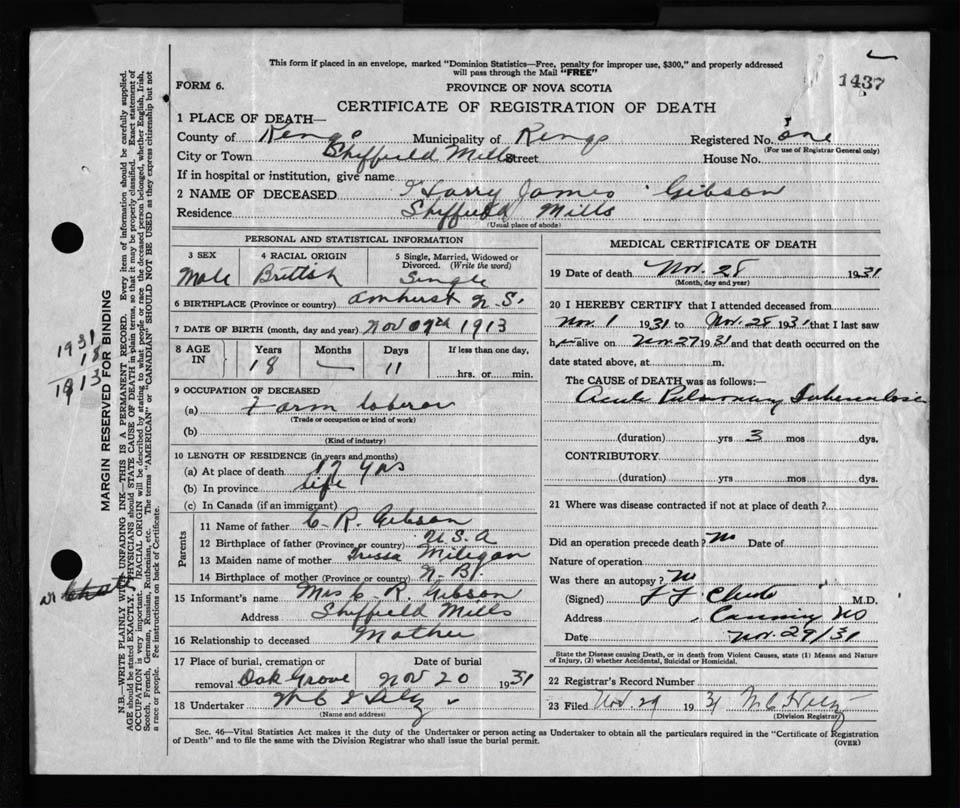 This form if placed in an envelope, marked "Dominion Statistics—Free, penalty for improper use, $300," and properly addressed
will pass through the Mail "FREE"
1437
FORM 6.
PROVINCE OF NOVA SCOTIA
CERTIFICATE OF REGISTRATION OF DEATH
1 PLACE OF DEATH—
County of Kings Municipality of Kings Registered No. one
(For use of Registrar General only)
City or Town Sheffield Mills Street House No.
If in hospital or institution, give name
2 NAME OF DECEASED Harry James Gibson
Residence Sheffield Mills
(Usual place of abode)
PERSONAL AND STATISTICAL INFORMATION
3 SEX 4 RACIAL ORIGIN 5 Single, Married, Widowed or
Divorced. (Write the word)
Male British Single
6 BIRTHPLACE (Province or country) Amherst N.S.
7 DATE OF BIRTH (month, day and year) Nov 1913
8 AGE IN Years Months Days If less than one day,
18 — 11 hrs. or min.
9 OCCUPATION OF DECEASED
(a) Farm laborer
(Trade or occupation or kind of work)
(b)
(Kind of industry)
10 LENGTH OF RESIDENCE (in years and months)
(a) At place of death 17 yrs
(b) In province life
(c) In Canada (if an immigrant)
Parents
11 Name of father C. R. Gibson
12 Birthplace of father (Province or country) U.S.A
13 Maiden name of mother Tressa Miligan
14 Birthplace of mother (Province or country) N.B.
15 Informant's name Mrs C. R. Gibson
Address Sheffield Mills
16 Relationship to deceased Mother
17 Place of burial, cremation or Date of burial
removal Oak Grove Nov 20 1931
18 Undertaker
(Name and address)
MEDICAL CERTIFICATE OF DEATH
19 Date of death Nov. 28 1931
(Month, day and year)
20 I HEREBY CERTIFY that I attended deceased from
Nov. 1 1931 to Nov. 28 1931 that I last saw
him alive on Nov 27 1931 and that death occurred on the
date stated above, at m.
The CAUSE of DEATH was as follows:—
Acute Pulmonary Tuberculosis
(duration) yrs 3 mos dys.
CONTRIBUTORY
(duration) yrs mos dys.
21 Where was disease contracted if not at place of death?
Did an operation precede death? No Date of
Nature of operation
Was there an autopsy? No
(Signed) M.D.
Address Canning NS
Date Nov. 29/31
State the Disease causing Death, or in death from Violent Causes, state (1) Means and Nature
of Injury, (2) whether Accidental, Suicidal or Homicidal.
22 Registrar's Record Number
23 Filed Nov. 29 1931
(Division Registrar)
Sec. 46—Vital Statistics Act makes it the duty of the Undertaker or person acting as Undertaker to obtain all the particulars required in the "Certificate of Registration
of Death" and to file the same with the Division Registrar who shall issue the burial permit. (OVER)
MARGIN RESERVED FOR BINDING
N.B.—WRITE PLAINLY WITH UNFADING INK—THIS IS A PERMANENT RECORD. Every item of information should be carefully supplied.
AGE should be stated EXACTLY. PHYSICIANS should STATE CAUSE OF DEATH in plain terms, so that it may be properly classified. Exact statement of
OCCUPATION is very important. RACIAL ORIGIN will be described by stating to what people or race the deceased person belonged, whether English, Irish,
Scotch, French, German, Russian, Ruthenian, etc. The terms "AMERICAN" or "CANADIAN" SHOULD NOT BE USED as they express citizenship but not
a race or people. Fee instructions on back of Certificate.
1931
18
1913